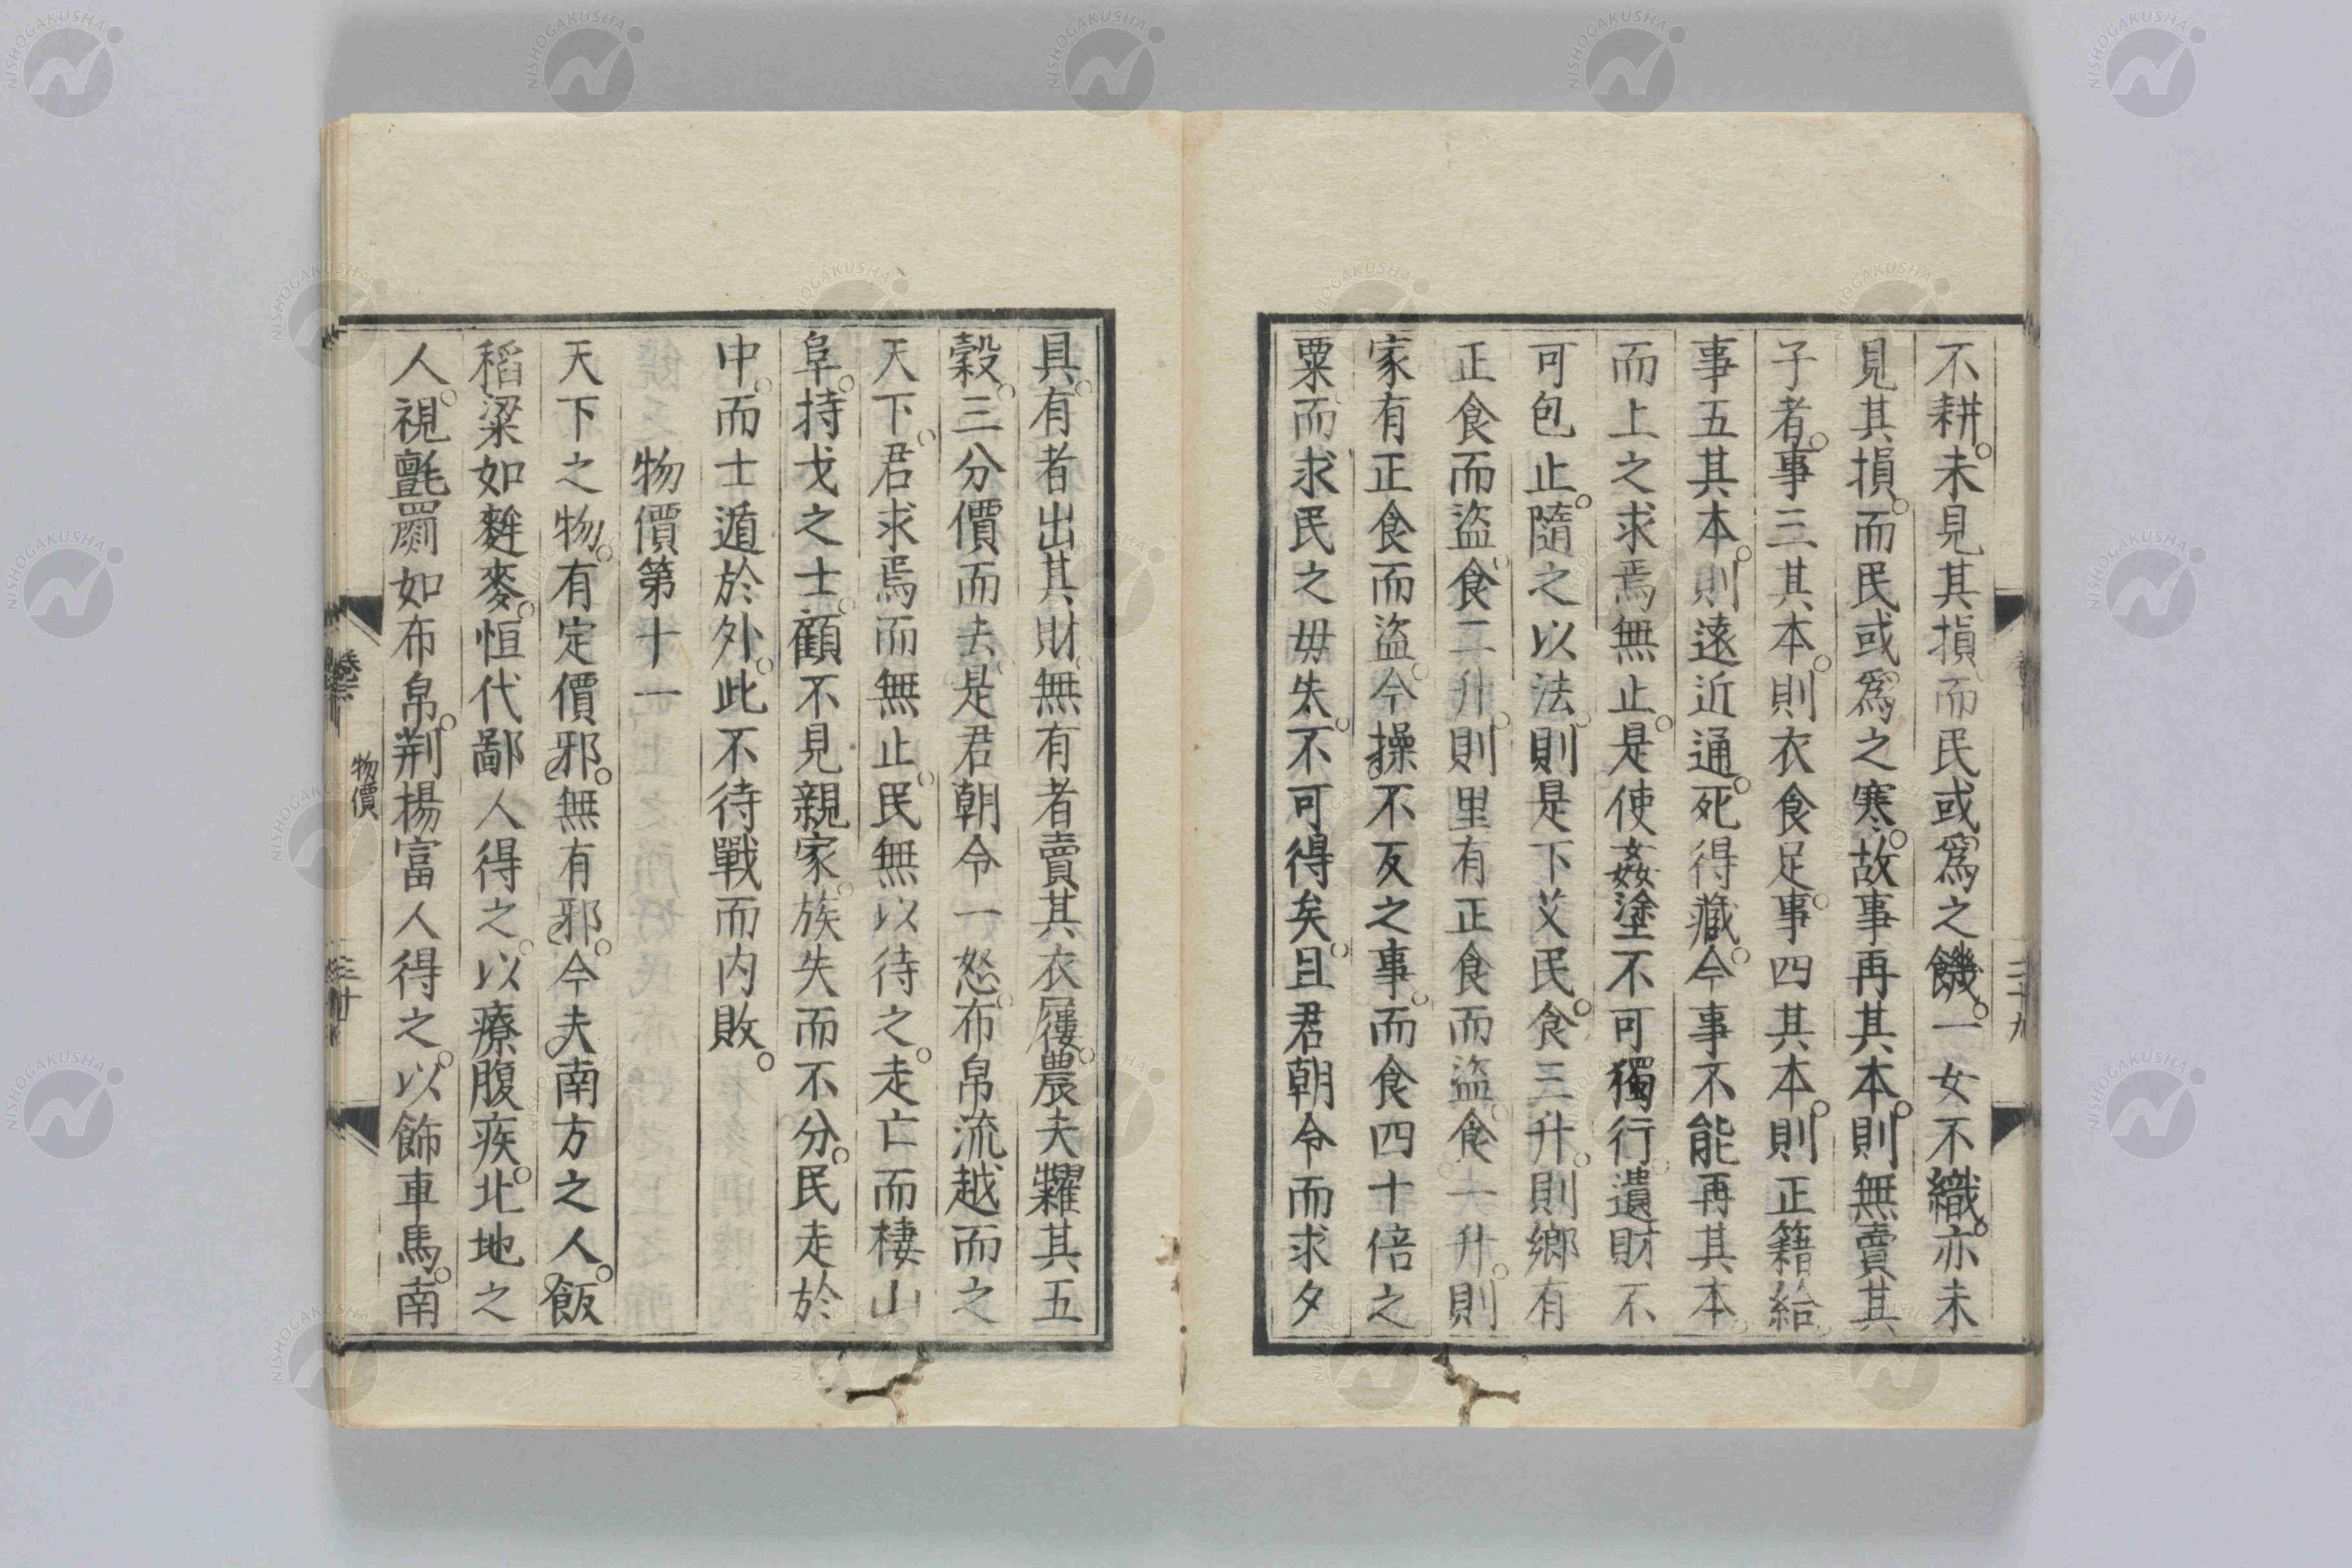 不耕。未見其損而民或爲之饑。一女不織。亦未
見其損。而民或爲之寒。故事再其本。則無賣其
子者。事三其本。則衣食足。事四其本。則正籍給
事五其本。則遠近通。死得藏。今事不能再其本
而上之求焉無止。是使姦塗不可獨行。遺財不
可包止。隨之以法。則是下艾民。食三升。則鄉有
正食而盜。食二升。則里有正食而盜。食一升。則
家有正食而盜。今操不反之事。而食四十倍之
粟。而求民之毋失。不可得矣。且君朝令而求夕
具。有者出其財。無有者賣其衣屨。農夫糶其五
穀。三分價而去。是君朝令一怒。布帛流越而之
天下。君求焉而無止。民無以待之。走亡而棲山
阜。持戈之士。顧不見親家。族失而不分。民走於
中。而士遁於外。此不待戰而内敗。
物價第十一
天下之物。有定價邪。無有邪。今夫南方之人。飯
稻粱如麰麥。恒代鄙人得之。以療腹疾。北地之
人。視氈罽如布帛。荆揚富人得之。以飾車馬。南
物價
三十
二十九
NISHOGAKUSHA